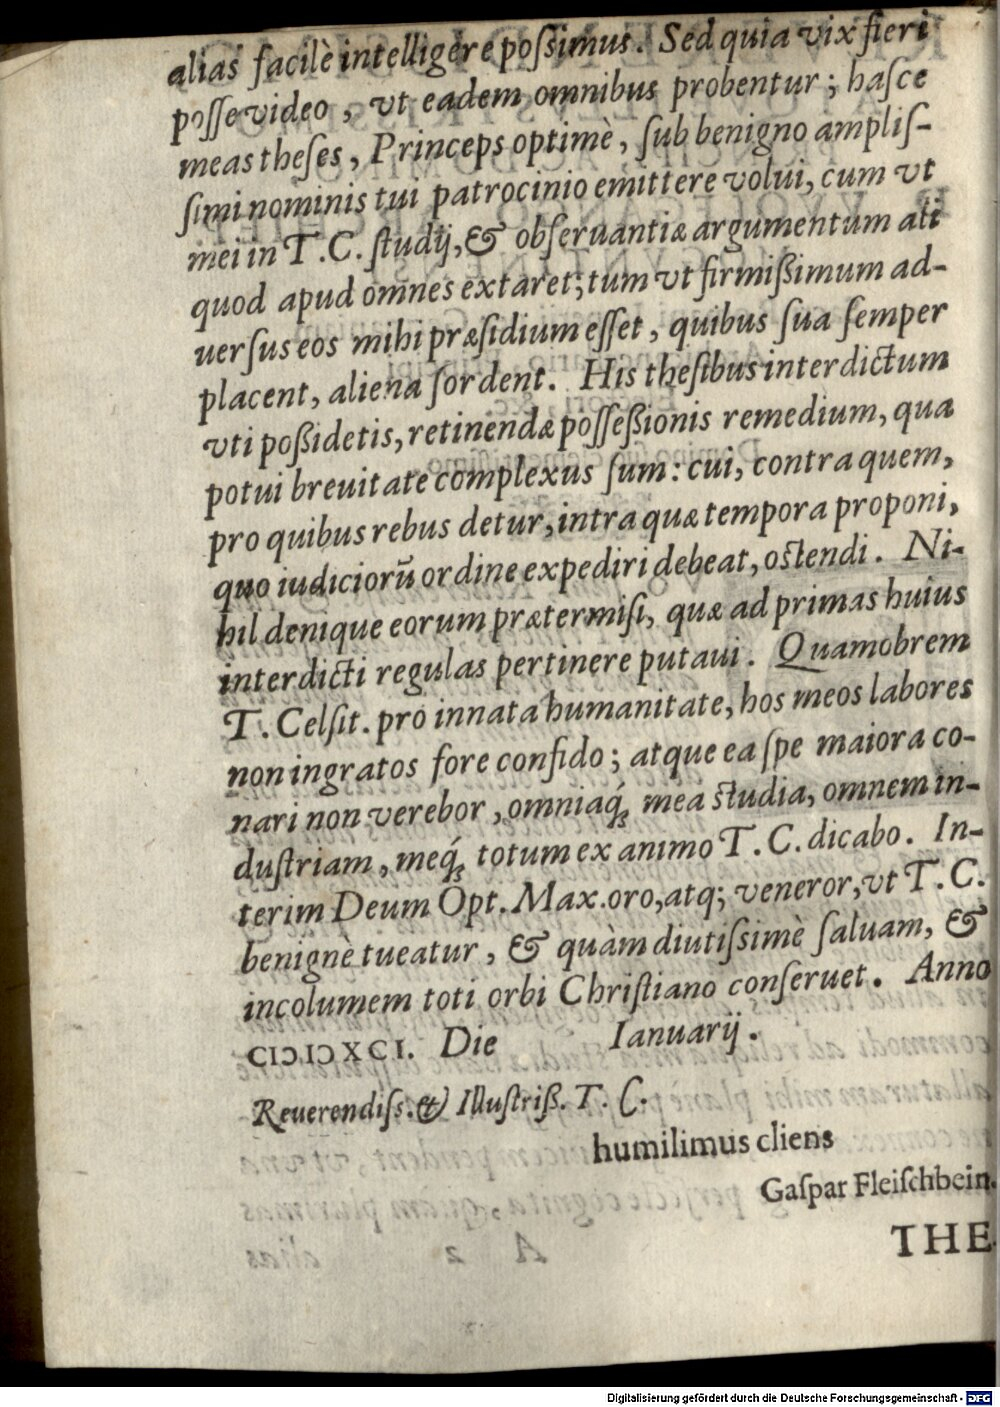 alias facilè intelligere poſsimus. Sed quia vix fieri
poſſe video, vt eadem omnibus probentur; haſce
meas theſes, Princeps optimè, ſub benigno ampliſ-
ſimi nominis tui patrocinio emittere volui, cum vt
mei in T.C. ſtudij, & obſeruantiæ argumentum ali
quod apud omnes extaret; tum vt firmißimum ad-
uerſus eos mihi præſidium eſſet, quibus ſua ſemper
placent, aliena ſordent. His theſibus interdictum
vti poßidetis, retinendæ poſſeßionis remedium, qua
potui breuitate complexus ſum: cui, contra quem,
pro quibus rebus detur, intra quæ tempora proponi,
quo iudiciorũ ordine expediri debeat, oſtendi. Ni-
hil denique eorum prætermiſi, quæ ad primas huius
interdicti regulas pertinere putaui. Quamobrem
T. Celſit. pro innata humanitate, hos meos labores
non ingratos fore confido; atque ea ſpe maiora co-
nari non verebor, omniaq́ꝫ mea ſtudia, omnem in-
duſtriam, meq́ꝫ totum ex animo T.C. dicabo. In-
terim Deum Opt. Max. oro, atq; veneror, vt T.C.
benignè tueatur, & quàm diutiſsimè ſaluam, &
incolumem toti orbi Chriſtiano conſeruet. Anno
CIƆ IƆ XCI. Die Ianuarij.
Reuerendiſs. & Illuſtriß. T. C.
humilimus cliens
Gaſpar Fleiſchbein.
THE-
Digitalisierung gefördert durch die Deutsche Forschungsgemeinschaft - DFG